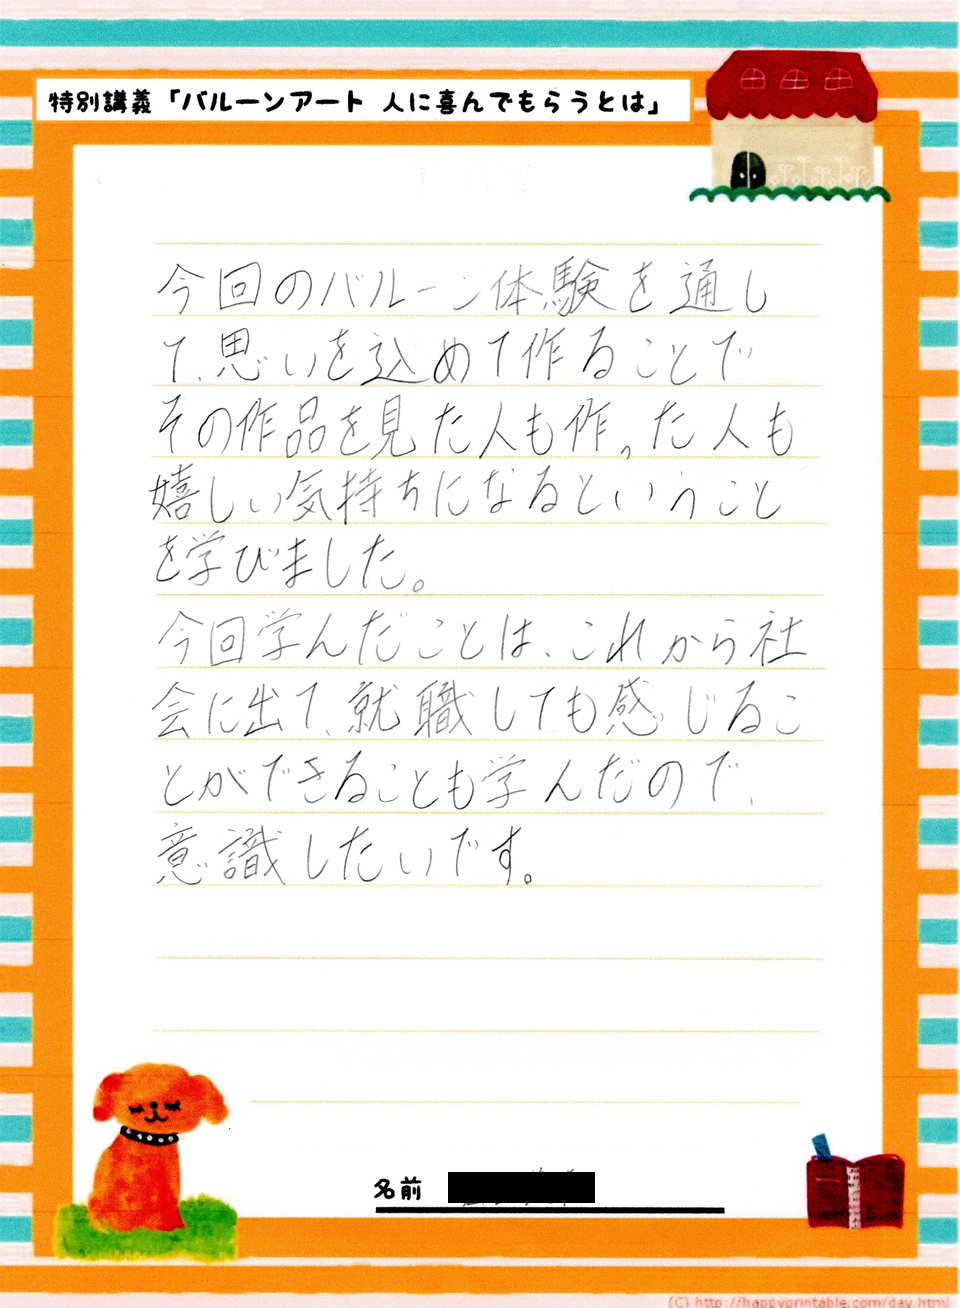 特別講義「バルーンアート 人に喜んでもらうとは」
今回のバルーン体験を通し
て、思いを込めて作ることで
その作品を見た人も作った人も
嬉しい気持ちになるということ
を学びました。
今回学んだことは、これから社
会に出て、就職しても感じるこ
とができることも学んだので、
意識したいです。
名前
(C) http://happyprintable.com/day.html